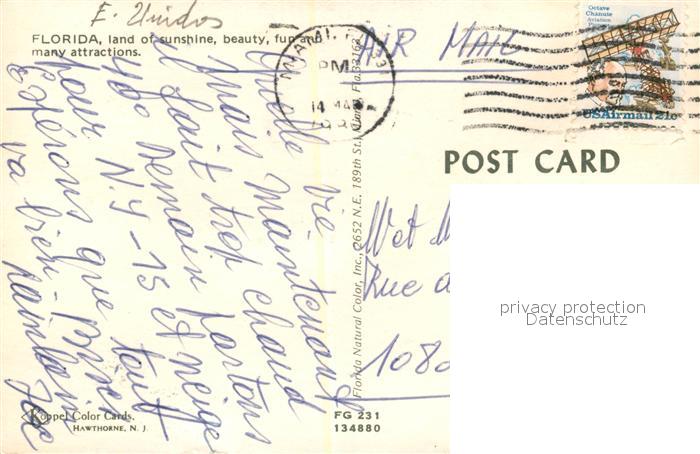 E. Unidos
FLORIDA, land of sunshine, beauty, fun and
many attractions.
AIR MAIL
MIAMI, FL 331
PM
14 MAR
Octave
Chanute
Aviation
Pioneer
USAirmail 21c
POST CARD
Quelle vie
mais maintenant
il fait trop chaud
40° Demain partons
pour N.Y -15 et neige
Espérons que tout
va bien
Florida Natural Color, Inc., 2652 N.E. 189th St., Miami, Fla. 33162
Met M
Rue d
1080
privacy protection
Datenschutz
Koppel Color Cards.
HAWTHORNE, N. J.
FG 231
134880